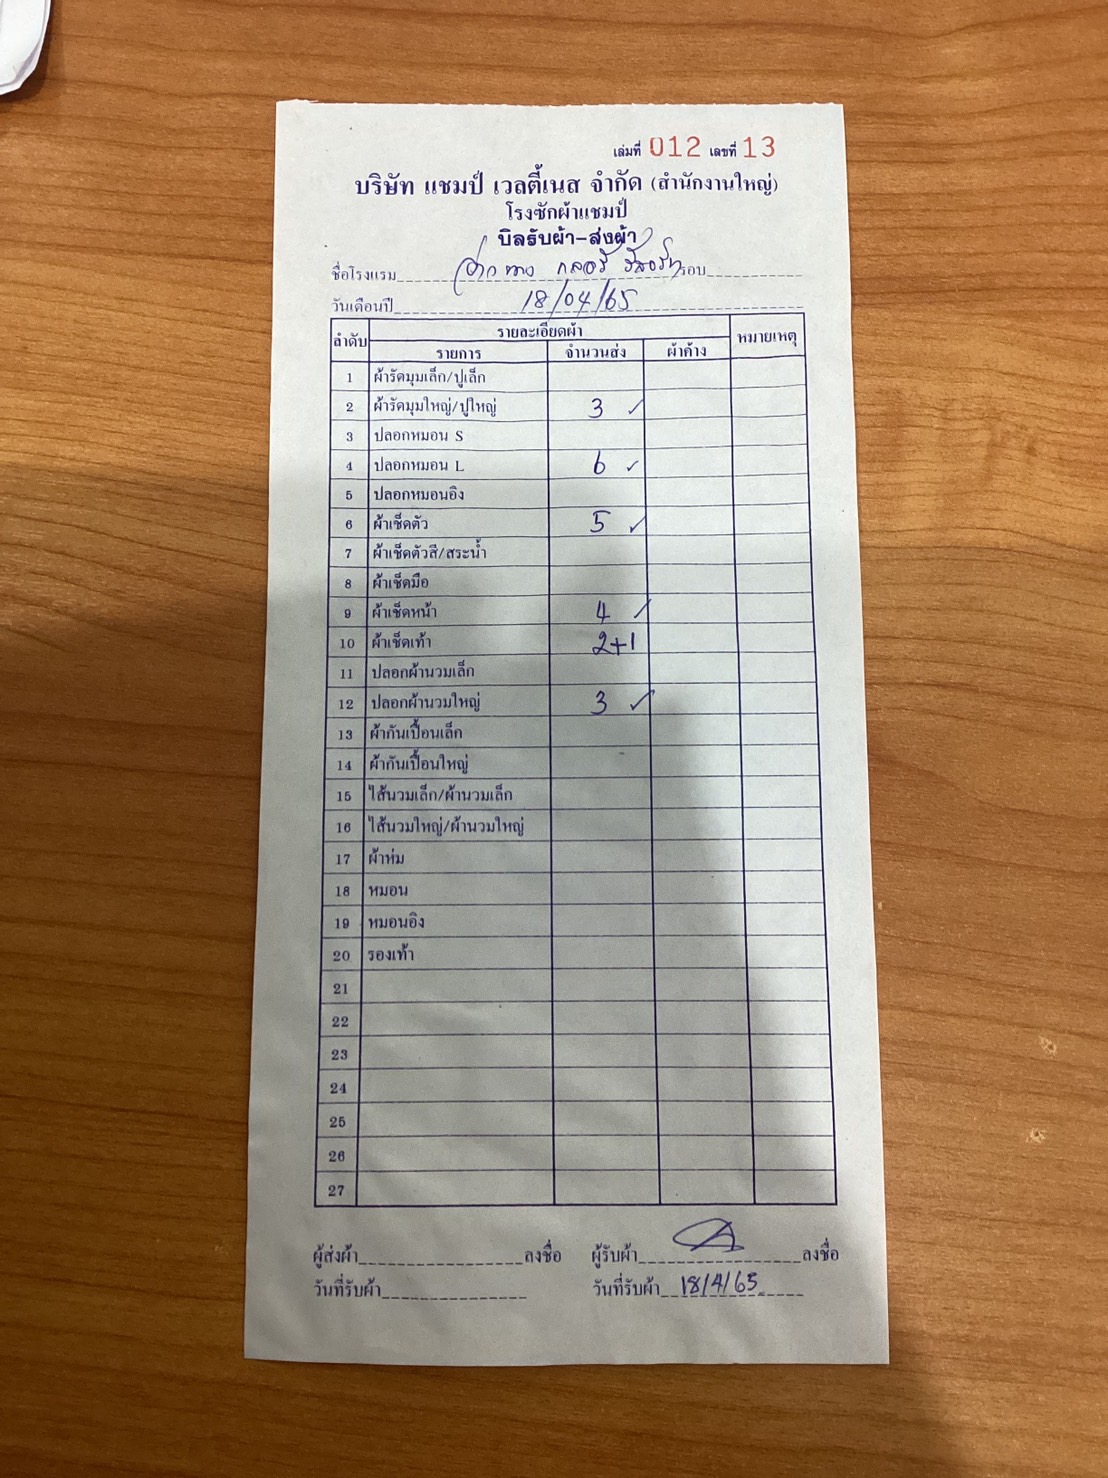 เล่มที่ 012 เลขที่ 13
บริษัท แชมป์ เวลตี้เนส จำกัด (สำนักงานใหญ่)
โรงซักผ้าแชมป์
บิลรับผ้า-ส่งผ้า
ชื่อโรงแรม อ่าวนาง กลอรี่ รีสอร์ท รอบ
วันเดือนปี 18/04/65
ลำดับ รายละเอียดผ้า หมายเหตุ
รายการ จำนวนส่ง ผ้าค้าง
1 ผ้ารัดมุมเล็ก/ปูเล็ก
2 ผ้ารัดมุมใหญ่/ปูใหญ่ 3 ✓
3 ปลอกหมอน S
4 ปลอกหมอน L 6 ✓
5 ปลอกหมอนอิง
6 ผ้าเช็ดตัว 5 ✓
7 ผ้าเช็ดตัวสี/สระน้ำ
8 ผ้าเช็ดมือ
9 ผ้าเช็ดหน้า 4 ✓
10 ผ้าเช็ดเท้า 2+1
11 ปลอกผ้านวมเล็ก
12 ปลอกผ้านวมใหญ่ 3 ✓
13 ผ้ากันเปื้อนเล็ก
14 ผ้ากันเปื้อนใหญ่
15 ไส้นวมเล็ก/ผ้านวมเล็ก
16 ไส้นวมใหญ่/ผ้านวมใหญ่
17 ผ้าห่ม
18 หมอน
19 หมอนอิง
20 รองเท้า
21
22
23
24
25
26
27
ผู้ส่งผ้า ลงชื่อ ผู้รับผ้า ลงชื่อ
วันที่รับผ้า วันที่รับผ้า 18/4/65